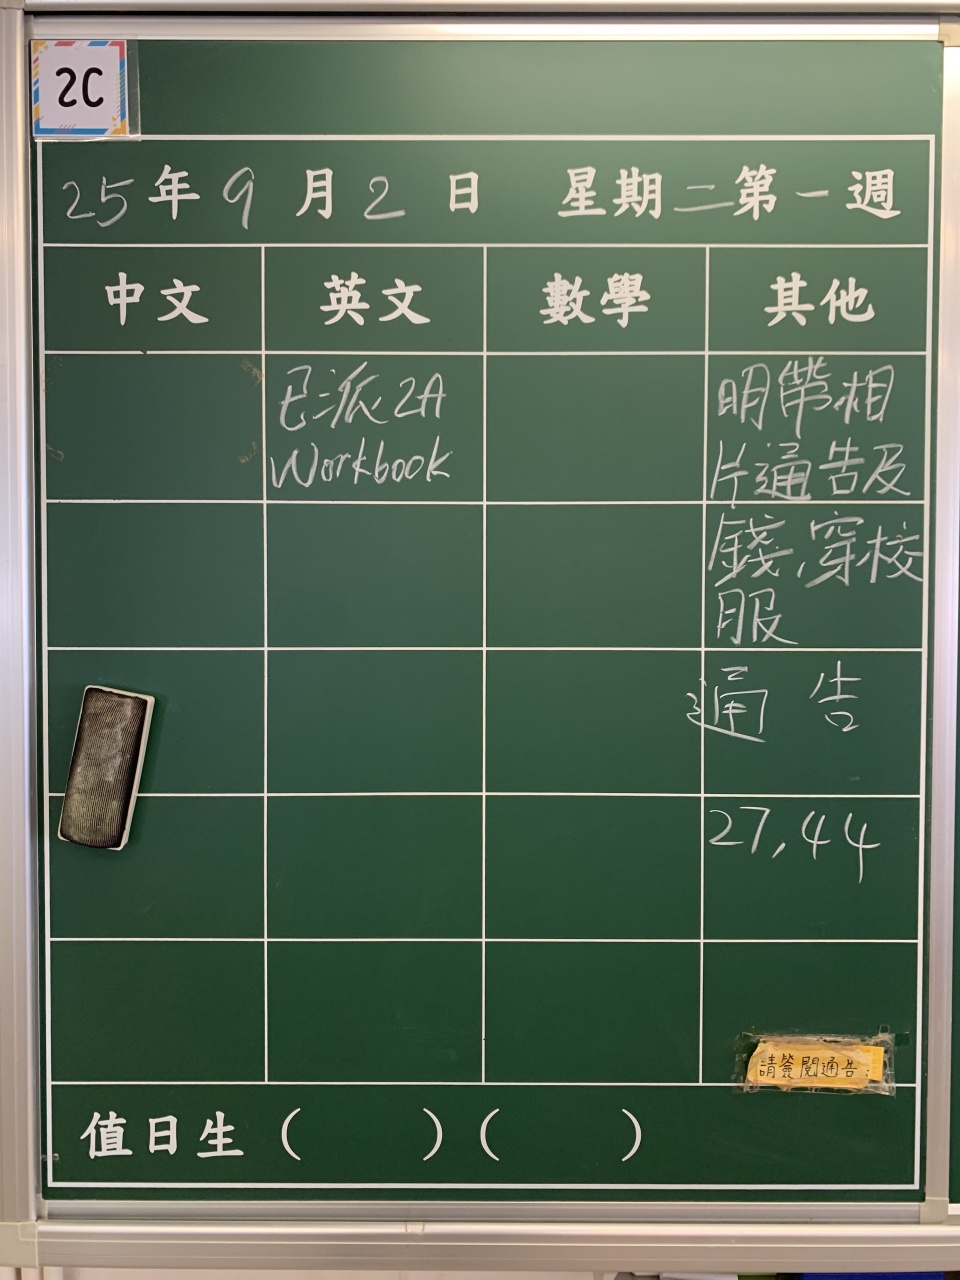 2C
25年9月2日 星期二第一週
中文 英文 數學 其他
已派2A
Workbook
明帶相
片通告及
錢,穿校
服
通告
27,44
請簽閱通告:
值日生( )( )